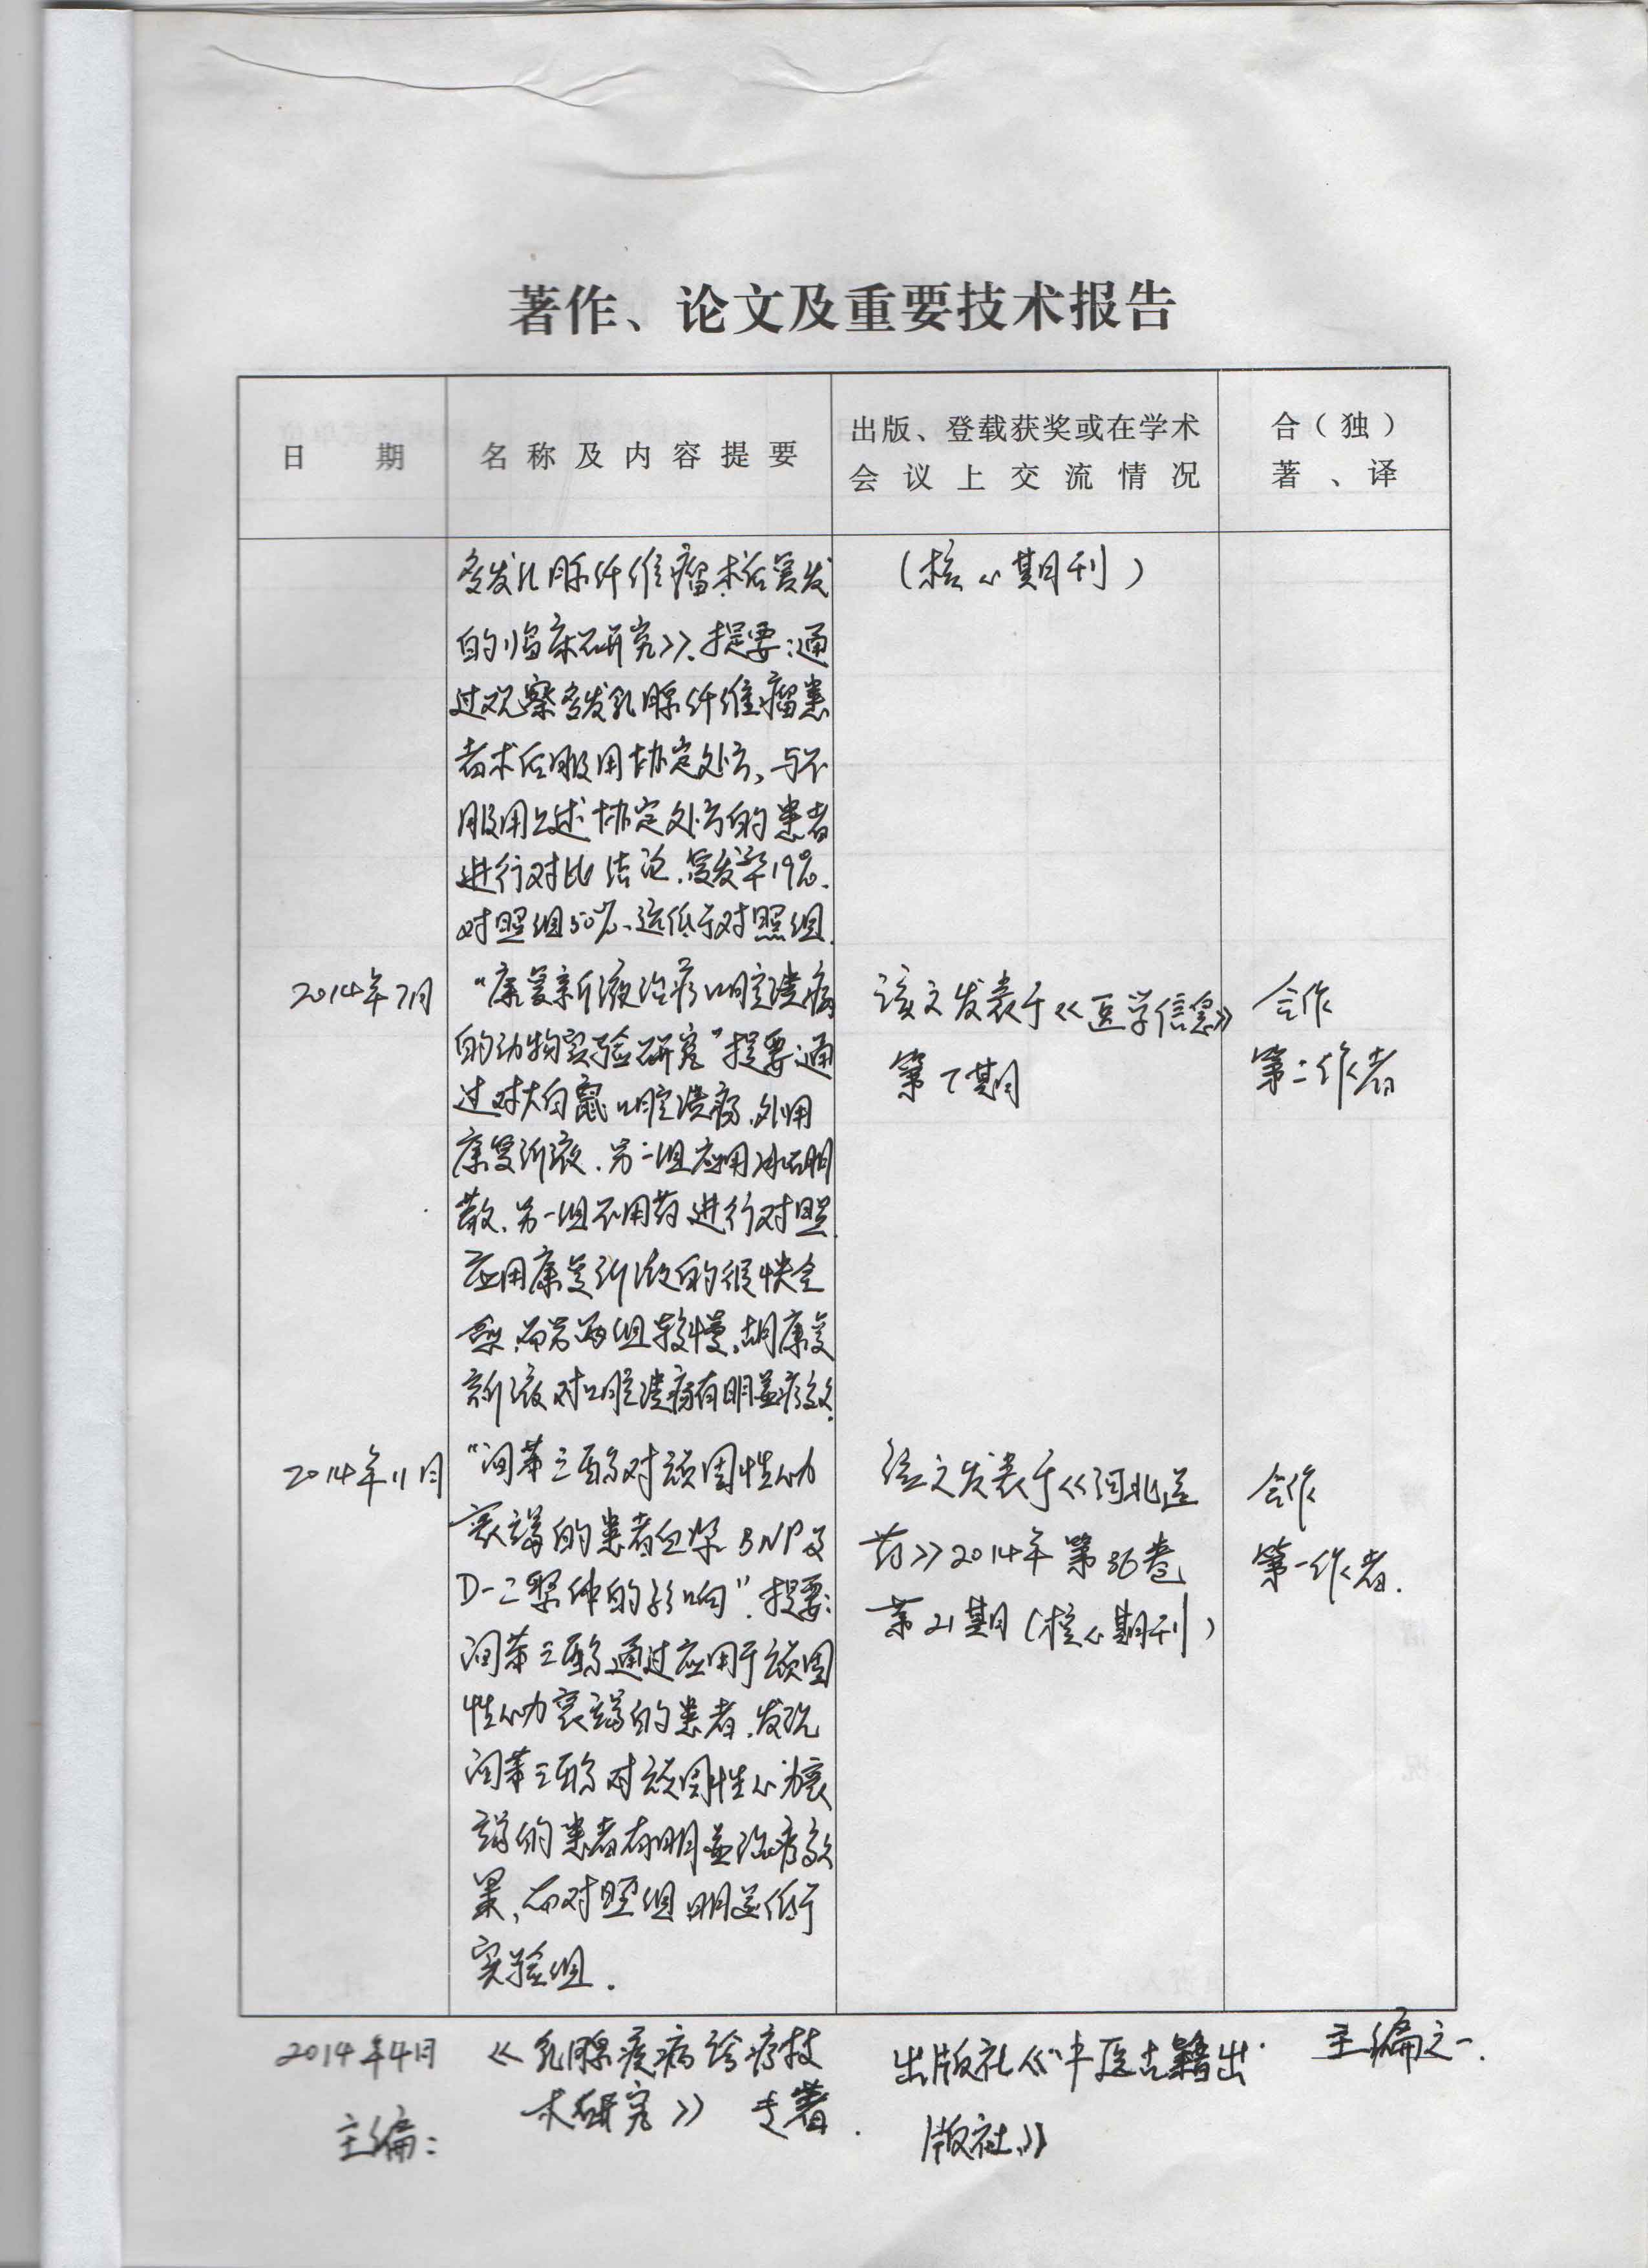 著作、论文及重要技术报告
日 期
名称及内容提要
出版、登载获奖或在学术
会议上交流情况
合（独）
著、译
多发乳腺纤维瘤术后复发
的临床研究》。提要：通
过观察多发乳腺纤维瘤患
者术后服用协定处方、与不
服用上述协定处方的患者
进行对比 结论.复发率19%.
对照组50%、远低于对照组.
（核心期刊）
2014年7月
“康复新液治疗口腔溃疡
的动物实验研究”提要:通
过对大白鼠口腔溃疡.外用
康复新液.另一组应用冰硼
散.另一组不用药进行对照.
应用康复新液的很快全
愈.而另两组较慢.
康复
新液对口腔溃疡有明显疗效.
该文发表于《医学信息》
第7期
合作
第二作者
2014年11月
“间苯三酚对顽固性心力
衰竭的患者血浆BNP及
D-二聚体的影响”.提要:
间苯三酚通过应用于顽固
性心力衰竭的患者.发现
间苯三酚对顽固性心力衰
竭的患者有明显治疗效
果,而对照组明显低于
实验组.
该文发表于《河北医
药》2014年第36卷
第21期（核心期刊）
合作
第一作者.
2014年4月
主编：
《乳腺疾病诊疗技
术研究》 专著.
出版社《中医古籍出
版社》
主编之一.